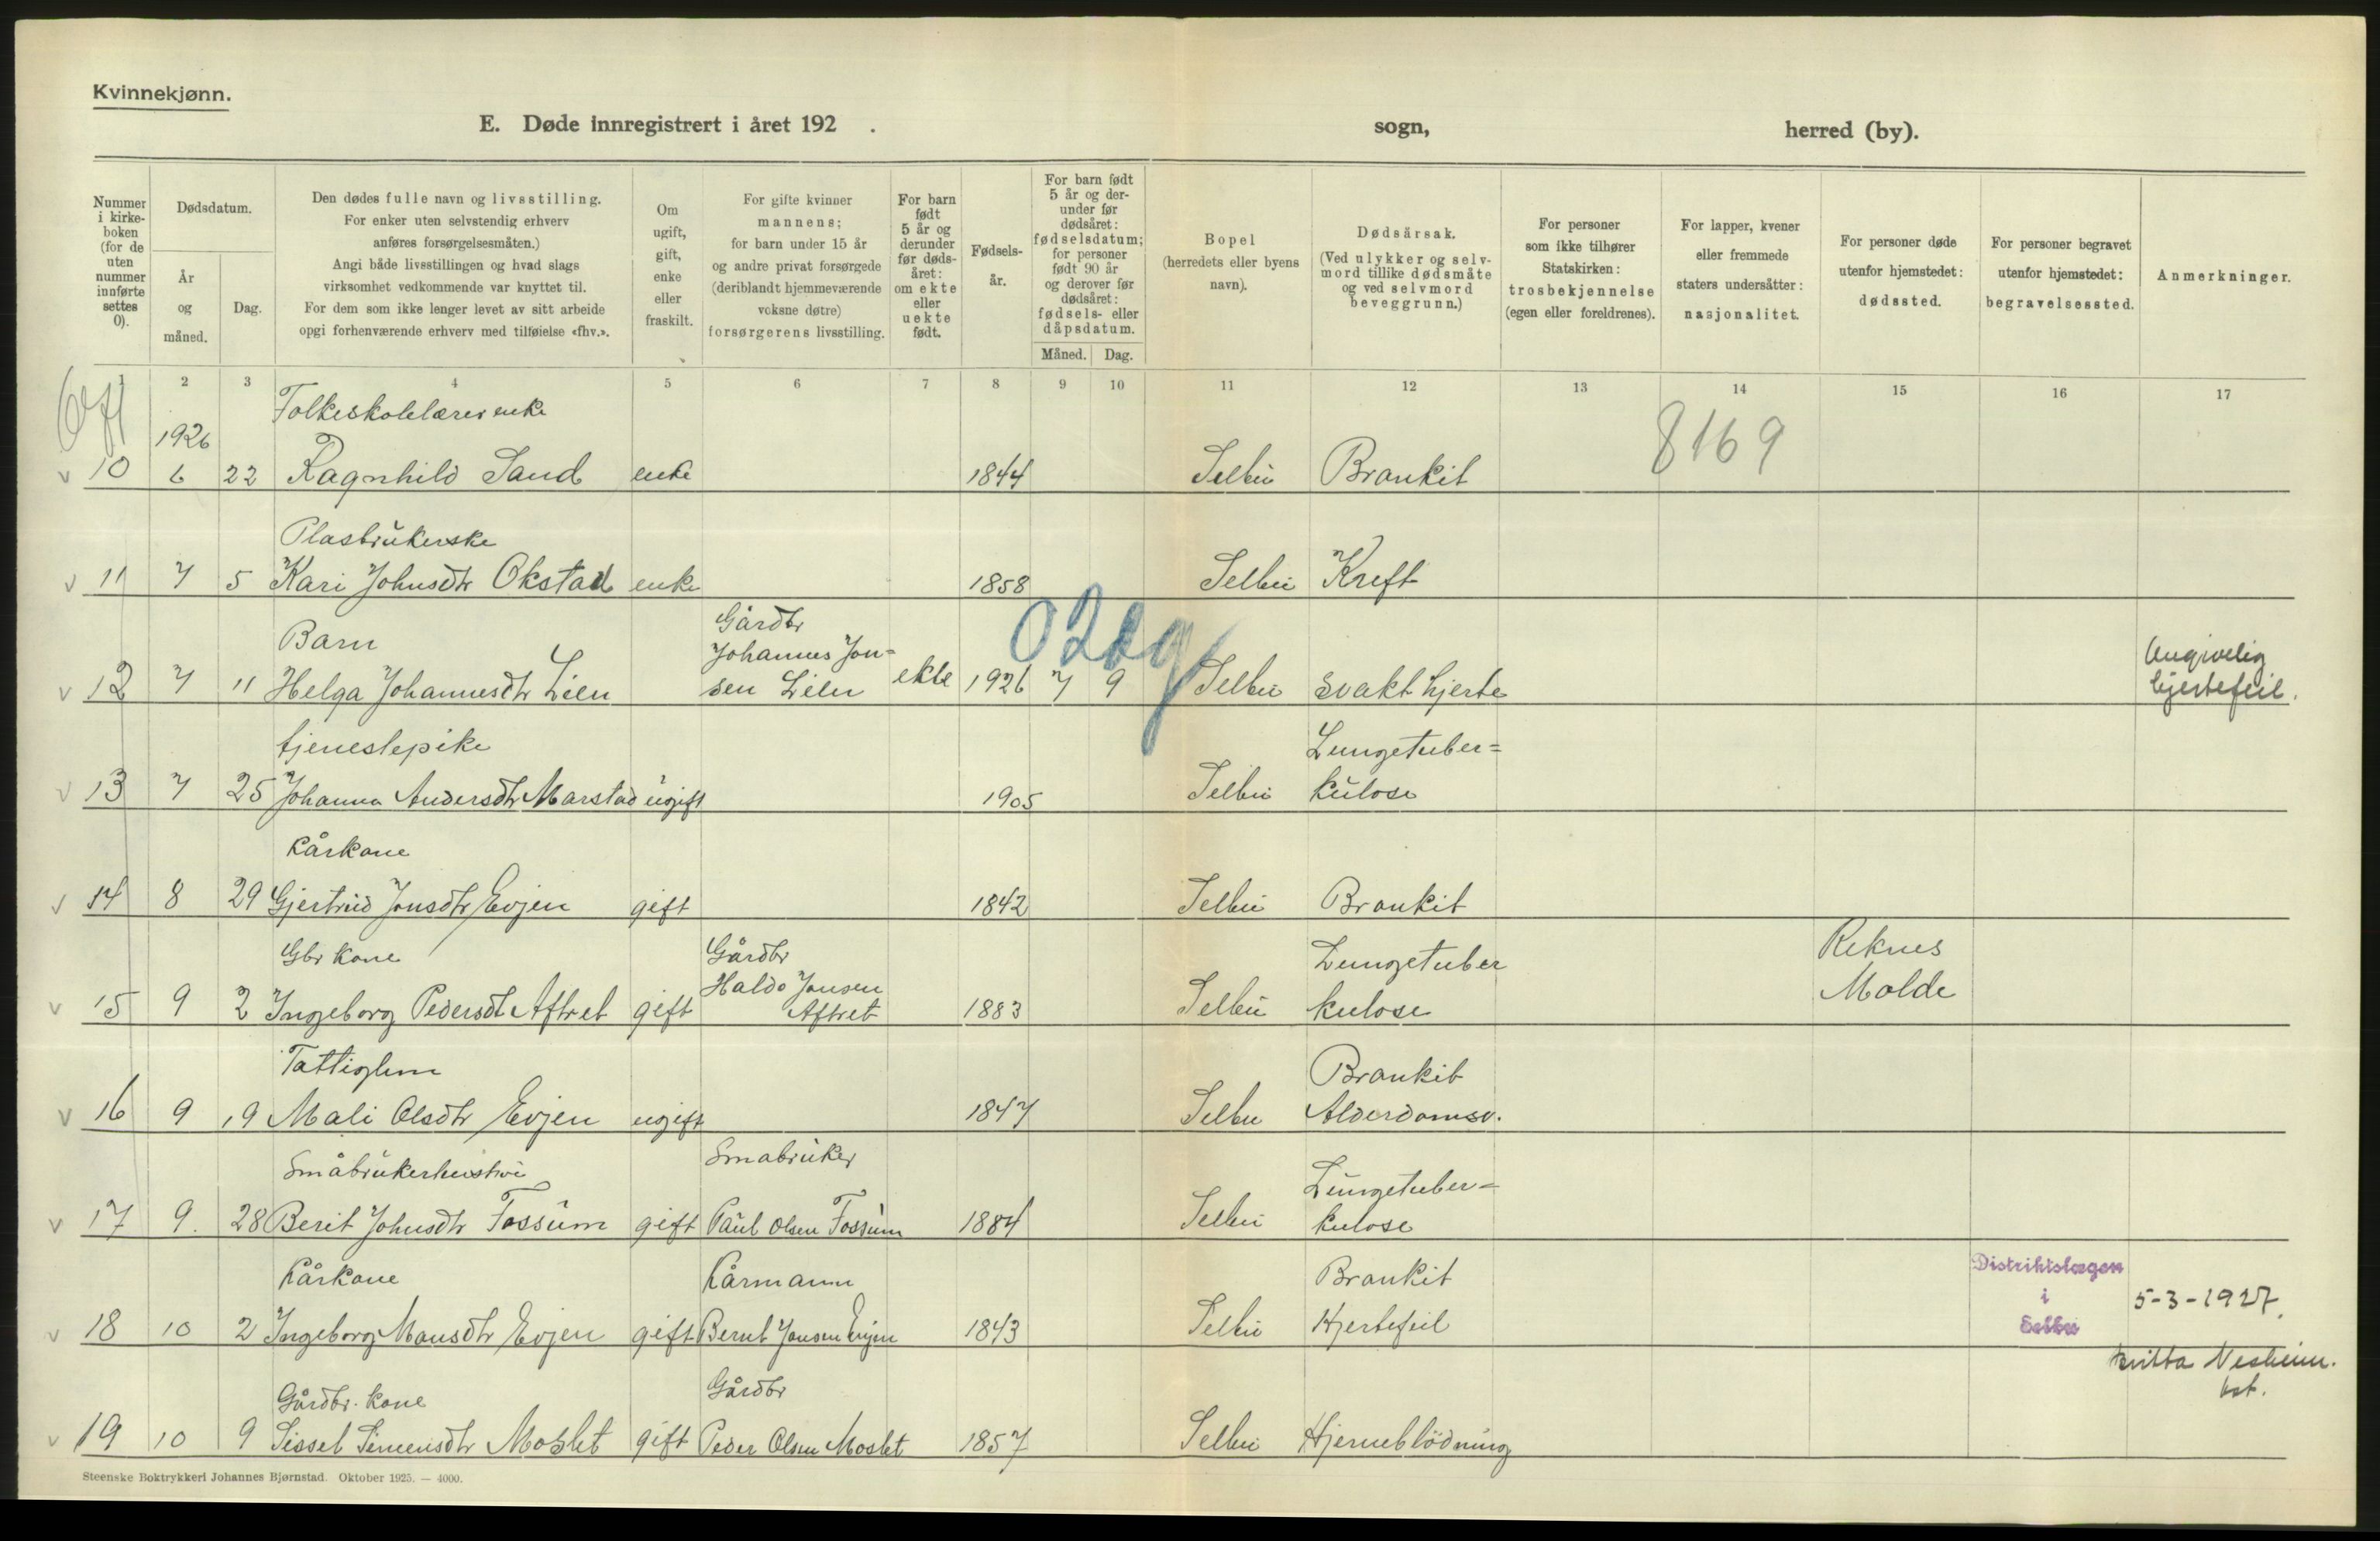 Kvinnekjønn.
E. Døde innregistrert i året 192 .
sogn,
herred (by).
Nummer i kirke-boken (for de uten nummer innførte settes 0).
Dødsdatum.
År og måned.
Dag.
Den dødes fulle navn og livsstilling.
For enker uten selvstendig erhverv
anføres forsørgelsesmåten.)
Angi både livsstillingen og hvad slags
virksomhet vedkommende var knyttet til.
For dem som ikke lenger levet av sitt arbeide
opgi forhenværende erhverv med tilføielse «fhv.».
Om ugift, gift, enke eller fraskilt.
For gifte kvinner
mannens;
for barn under 15 år
og andre privat forsørgede
(deriblandt hjemmeværende
voksne døtre)
forsørgerens livsstilling.
For barn født 5 år og derunder før døds-året: om ekte eller uekte født.
Fødsels-år.
For barn født 5 år og der-under før dødsåret: fødselsdatum; for personer født 90 år og derover før dødsåret: fødsels- eller dåpsdatum.
Måned. Dag.
Bopel
(herredets eller byens
navn).
Dødsårsak.
(Ved ulykker og selv-
mord tillike dødsmåte
og ved selvmord
beveggrunn.)
For personer
som ikke tilhører
Statskirken:
trosbekjennelse
(egen eller foreldrenes).
For lapper, kvener
eller fremmede
staters undersåtter:
nasjonalitet.
For personer døde
utenfor hjemstedet:
dødssted.
For personer begravet
utenfor hjemstedet:
begravelsessted.
Anmerkninger.
1 2 3 4 5 6 7 8 9 10 11 12 13 14 15 16 17
Folkeskolelærerenke
1926
8169
v 10 6 22 Ragnhild Sand enke 1844 Selbu Bronkit
Plasbrukerske
v 11 7 5 Kari Johnsdtr Okstad enke 1858 Selbu Kreft
Barn Gårdbr
Johannes Jon-
v 12 7 11 Helga Johannesdtr Lien sen Lien ekte 1926 7 9 Selbu svakt hjerte Angivelig
hjertefeil.
tjenestepike Lungetuber-
v 13 7 25 Johanna Andersdtr Marstad ugift 1905 Selbu kulose
Kårkone
v 14 8 29 Gjertrud Jonsdtr Evjen gift 1842 Selbu Bronkit
Gbr kone Gårdbr Lungetuber Reknes
Haldo Jonsen Molde
v 15 9 2 Ingeborg Pedersdt Aftret gift Aftret 1883 Selbu kulose
Fattiglem Bronkit
v 16 9 19 Mali Olsdtr Evjen ugift 1847 Selbu Alderdomsv.
Småbrukerhustru Småbruker Lungetuber-
v 17 9. 28 Berit Johnsdtr Fossum gift Paul Olsen Fossum 1884 Selbu kulose
Kårkone Kårmann Bronkit Distriktslægen
i
Selbu
5-3-1927.
v 18 10 2 Ingeborg Monsdtr Evjen gift Bernt Jonsen Evjen 1843 Selbu Hjertefeil
Gårdbr. kone Gårdbr
v 19 10 9 Sissel Simensdtr Moslet gift Peder Olsen Moslet 1857 Selbu Hjerneblødning
Steenske Boktrykkeri Johannes Bjørnstad. Oktober 1925. — 4000.